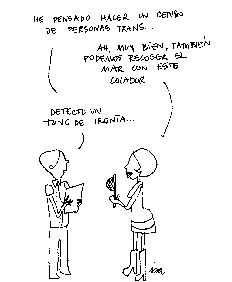 HE PENSADO HACER UN CENSO
DE PERSONAS TRANS...
AH, MUY BIEN, TAMBIÉN
PODEMOS RECOGER EL
MAR CON ESTE
COLADOR
DETECTO UN
TONO DE IRONÍA...